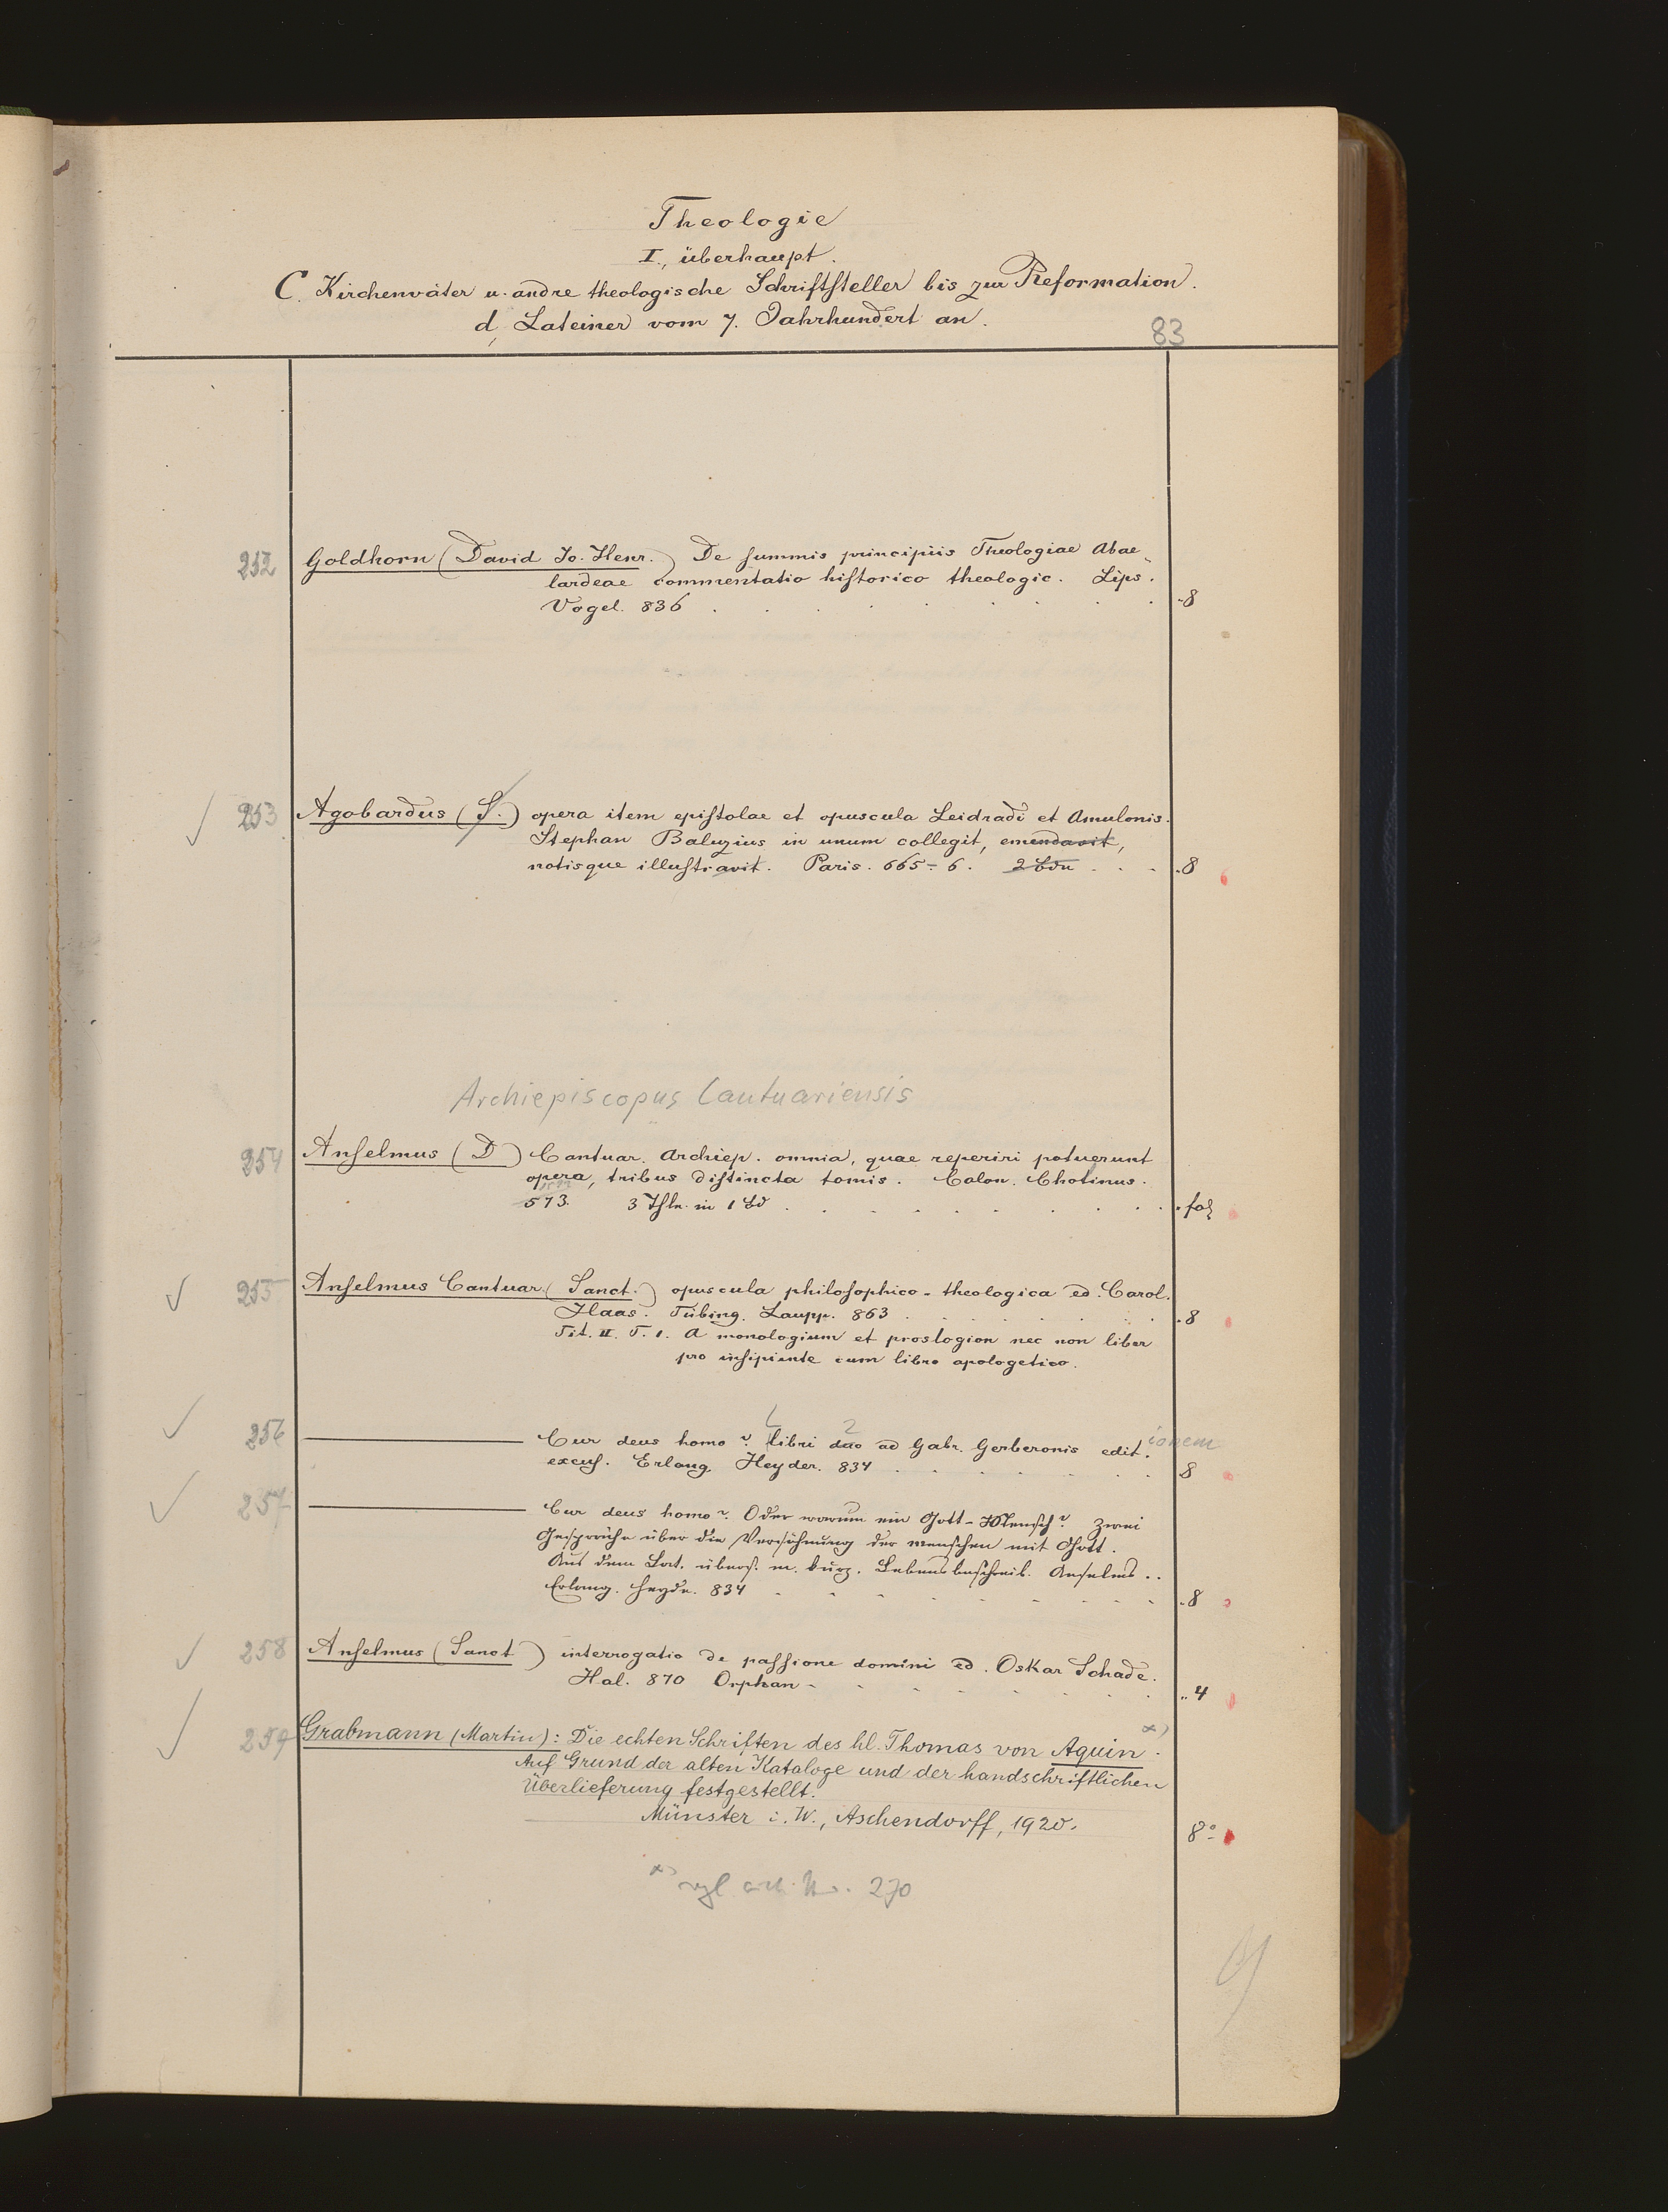 Theologie
I., überhaupt.
C. Kirchenväter u. andre theologische Schriftsteller bis zur Reformation.
d, Lateiner vom 7. Jahrhundert an.
83
252 Goldhorn (David Jo. Henr.) De summis principiis Theologiae Abae-
lardeae commentatio historico theologic. Lips.
Vogel. 836 . . . . . . . 8
253 Agobardus (S.) opera item epistolae et opuscula Leidradi et Amulonis.
Stephan Baluzius in unum collegit, emendavit,
notisque illustravit. Paris. 665-6. 2 Bdn . . . 8
Archiepiscopus Cantuariensis
254 Anselmus (D) Cantuar. Archiep. omnia, quae reperiri potuerunt
opera, tribus distincta tomis. Colon. Cholinus.
573. 3 Thle. in 1 Bd . . . . . . . fol
255 Anselmus Cantuar (Sanct.) opuscula philosophico-theologica ed. Carol.
Haas. Tübing. Laupp. 863 . . . . . . 8
Tit. II. T. 1. A monologium et proslogion nec non liber
pro insipiente cum libro apologetico.
256 ——— Cur deus homo? libri duo ad Gabr. Gerberonis edit. ionem
L 2
excus. Erlang Heyder. 834 . . . . . . 8
257 ——— Cur deus homo? Oder warum ein Gott-Mensch? Zwei
Gespräche über die Versöhnung der Menschen mit Gott.
Aus dem Lat. übers. m. kurz. Lebensbeschreib. Anselms ..
Erlang. Heyde. 834 . . . . . . . 8
258 Anselmus (Sanct) interrogatio de passione domini ed. Oskar Schade.
Hal. 870 Orphan . . . . . . . 4
259 Grabmann (Martin): Die echten Schriften des hl. Thomas von Aquin x).
Auf Grund der alten Kataloge und der handschriftlichen
Überlieferung festgestellt.
Münster i. W., Aschendorff, 1920. 8°
x) vgl auch Nr. 270